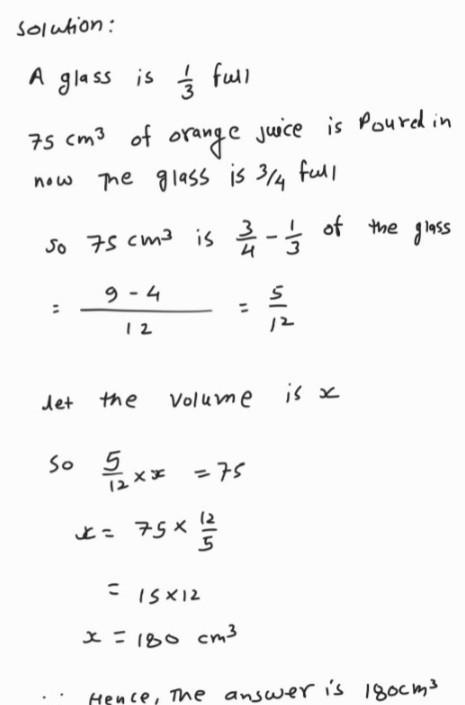 Solution:
A glass is 1/3 full
75 cm³ of orange juice is Poured in
now The glass is 3/4 full
So 75 cm³ is 3/4 - 1/3 of the glass
= (9 - 4)/12 = 5/12
let the Volume is x
So 5/12 × x = 75
x = 75 × 12/5
= 15 × 12
x = 180 cm³
∴ Hence, The answer is 180cm³